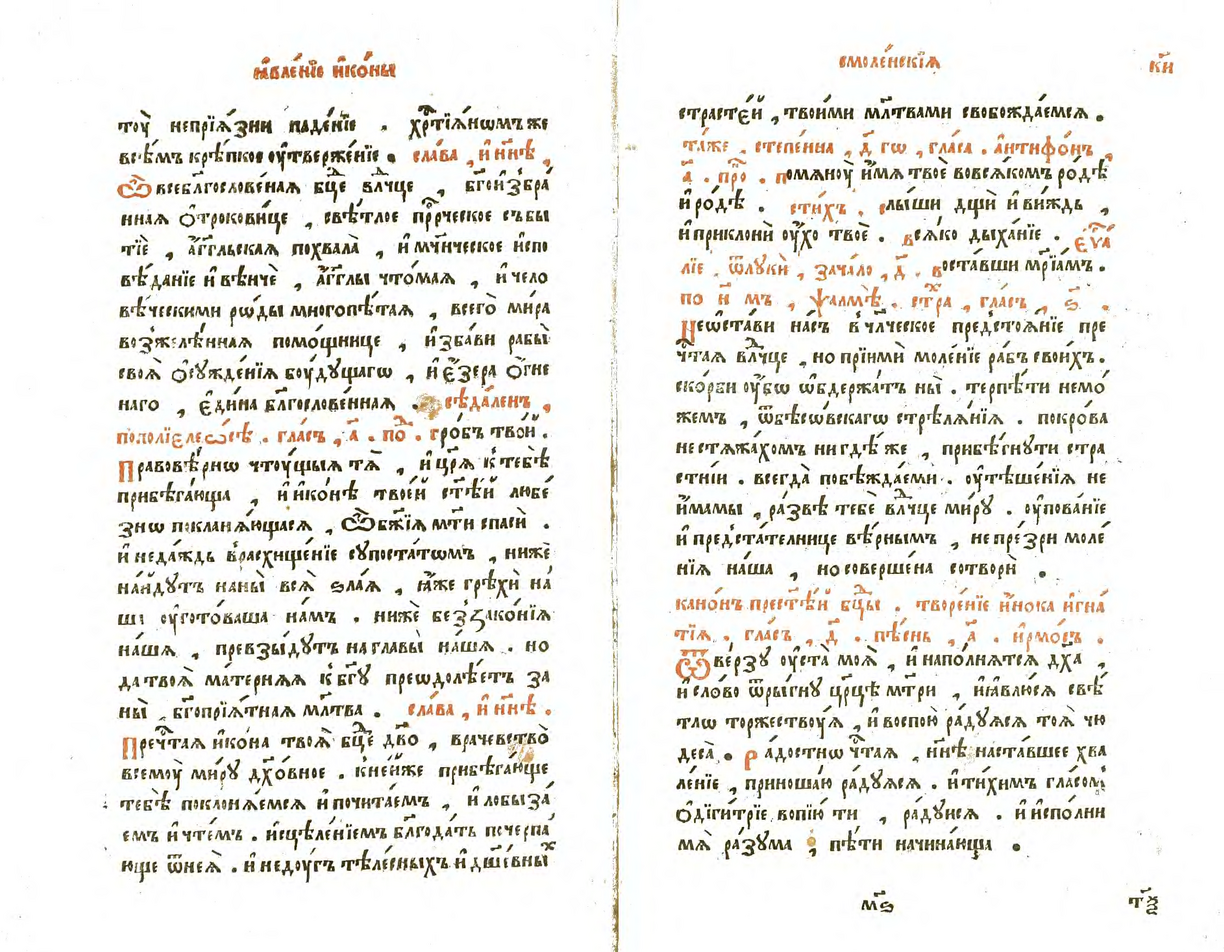 ꙗ҆вле́нїе и҆ко́ны
тоу̀ непрїѧ́зни паде́нїе . хр҇тїѧ́нѡмъ же
всѣ́мъ крѣ́пкое оу҆тверже́нїе . сла́ва , и҆ нн҃ѣ ,
Ѽ всебл҃гослове́наѧ бц҃е влⷣчце , бг҃оизбра́
ннаѧ ѻ҆трокови́це , свѣ́тлое прⷪ҇рческое събы
тїѐ , а҆́гг҃льскаѧ похвала̀ , и҆ мч҃нческое и҆спо
вѣ́данїе и҆ вѣ́нче , а҆́гг҃лы что́маѧ , и҆ чело
вѣ́ческими рѡ́ды многопѣ́таѧ , всего̀ ми́ра
возжелѣ́ннаѧ помо́щнице , и҆зба́ви рабы̀
своѧ̀ ѻ҆сужде́нїѧ бꙋ́дꙋщагѡ , и҆ є҆́зера ѻ҆́гне
наго , є҆ди́на бл҃гослове́ннаѧ . сѣда́ленъ ,
по полїеле́ѡсѣ . гла́съ , а҃ . поⷣ . гро́бъ тво́й .
Правовѣ́рнѡ чтоу́щыѧ тѧ̀ , и҆ цр҃ѧ̀ к тебѣ̀
прибѣга́юща , и҆ и҆ко́нѣ твое́й ст҃ѣ́й любе́
знѡ покланѧ́ющасѧ , Ѽ бж҃їѧ мт҃и спасѝ .
и҆ неда́ждь в расхище́нїе сꙋпоста́тѡмъ , нижѐ
на́йдꙋтъ на ны̀ всѧ̀ ѕла́ѧ , ꙗ҆́же грѣхѝ на́
ша оу҆гото́ваша на́мъ . нижѐ беззако́нїѧ
на́шѧ , превзы́дꙋтъ на главы̀ на́шѧ . но
да твоѧ̀ ма́терняѧ к бг҃ꙋ преѡдолѣ́етъ за
ны̀ , бг҃опрїѧ́тнаѧ мл҃тва . сла́ва , и҆ нн҃ѣ .
Преч҇таѧ и҆ко́на твоѧ̀ бц҃е дв҃о , врачевство̀
всемоу̀ ми́рꙋ дх҃о́вное . к не́йже прибѣга́юще
тебѣ̀ поклонѧ́емсѧ и҆ почита́емъ , и҆ лобыза́
емъ и҆ чте́мъ . и҆сцѣле́нїемъ бл҃года́ть почерпа́
юще ѿ неѧ̀ . и҆ недоу́гъ тѣле́сныхъ и҆ дш҃е́вныⷯ
смоле́нскїѧ
к҃и
страсте́й , твои́ми мл҃твами свобожда́емсѧ .
та́же , степе́нна , д҃ гѡ , гла́са . антифо́нъ ,
а҃ . про . помѧноу̀ и҆́мѧ твоѐ во всѧ́комъ ро́дѣ
и҆ ро́дѣ . сти́хъ . слы́ши дщѝ и҆ ви́ждь ,
и҆ приклонѝ оу҆́хо твоѐ . всѧ́ко дыха́нїе . є҆ѵⷢ҇а́
лїе , ѿ лꙋкѝ , зача́ло , д҃ . воста́вши мр҃їа́мъ .
по н҃ мъ , ѱалмѣ̀ . стⷯра , гла́съ , ѕ҃ .
Не ѡ҆ста́ви на́съ в чл҃ческое предстоѧ́нїе пре
ч҇таѧ влⷣчце , но прїимѝ моле́нїе ра́бъ свои́хъ .
ско́рби оу҆́бѡ ѡ҆бдержа́тъ ны̀ . терпѣ́ти немо́
жемъ , ѿ бѣсѡ́вскагѡ стрѣлѧ́нїѧ . покро́ва
не стѧжа́хомъ нигдѣ́же , прибѣ́гнꙋти стра
стнїи . всегда̀ побѣжда́еми . оу҆тѣше́нїѧ не
и҆́мамы , ра́звѣ тебѐ влⷣчце ми́рꙋ . оу҆пова́нїе
и҆ предста́телнице вѣ́рнымъ , не пре́зри моле́
нїѧ на́ша , но соверше́на сотворѝ .
кано́нъ прест҃ѣ́й бц҃ы . творе́нїе и҆́нока и҆гна́
тїѧ . гла́съ , д҃ . пѣ́снь , а҃ . и҆рмо́съ .
Ѿве́рзꙋ оу҆ста̀ моѧ̀ , и҆ напо́лнѧтсѧ дх҃а ,
и҆ сло́во ѿры́гнꙋ цр҃цѣ мт҃ри , и҆ ꙗ҆влю́сѧ свѣ́
тлѡ торжествоу́ѧ , и҆ воспою̀ ра́дꙋѧсѧ тоѧ̀ чю
деса̀ . Ра́достнѡ ч҇таѧ , нн҃ѣ наста́вшее хва
ле́нїе , приноша́ю ра́дꙋѧсѧ . и҆ ти́химъ гла́сомъ
ѻ҆диги́трїе вопїю́ ти , ра́дꙋисѧ . и҆ и҆спо́лни
мѧ̀ ра́зꙋма , пѣ́ти начина́юща .
м҃ѕ